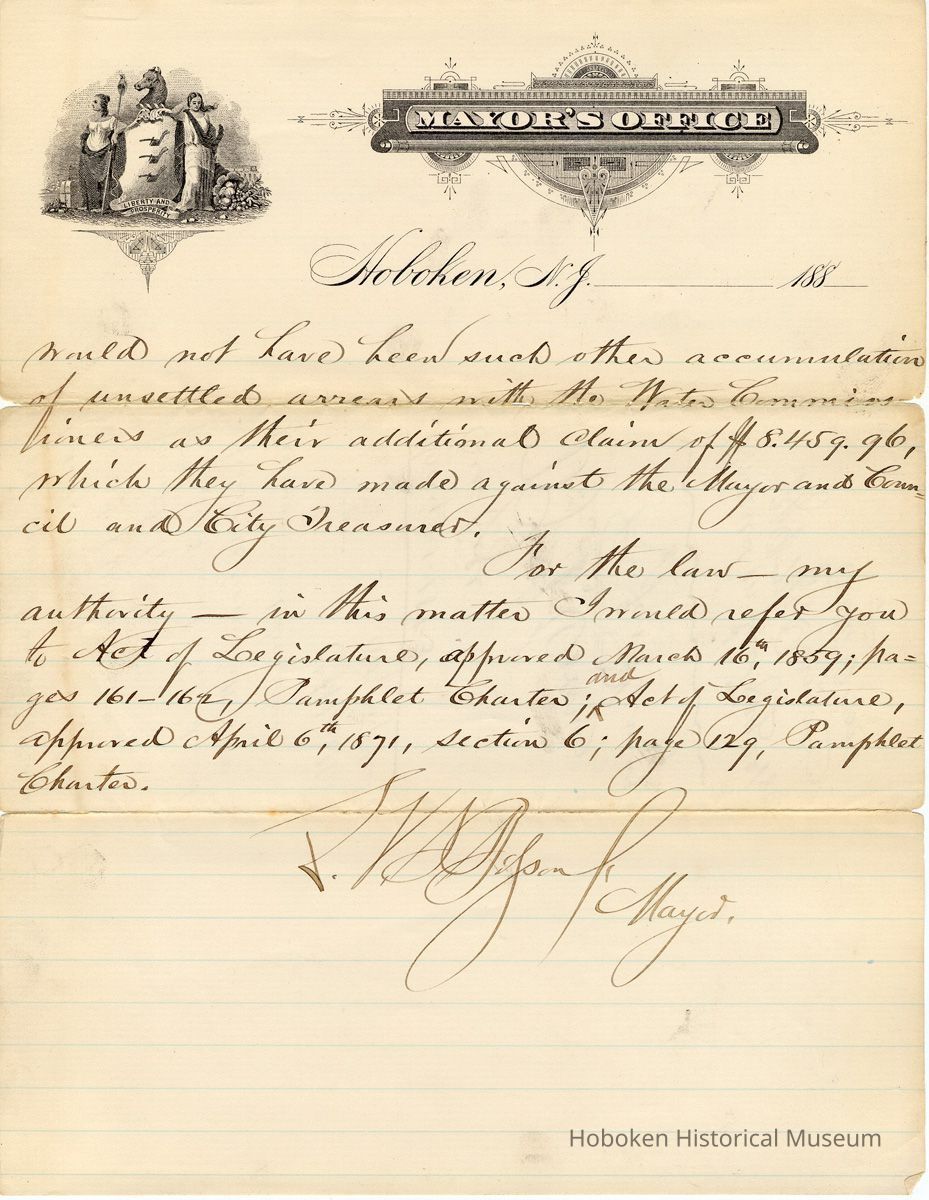 MAYOR'S OFFICE
LIBERTY AND
PROSPERITY
Hoboken, N.J. 188
would not have been such other accumulation
of unsettled arrears with the Water Commis
sioners as their additional claim of $8.459.96,
which they have made against the Mayor and Coun=
cil and City Treasurer.
For the law — my
authority — in this matter I would refer you
to Act of Legislature, approved March 16th, 1859; pa=
ges 161-162, Pamphlet Charter; and Act of Legislature,
approved April 6th, 1871, section 6; page 129, Pamphlet
Charter.
Mayor.
Hoboken Historical Museum